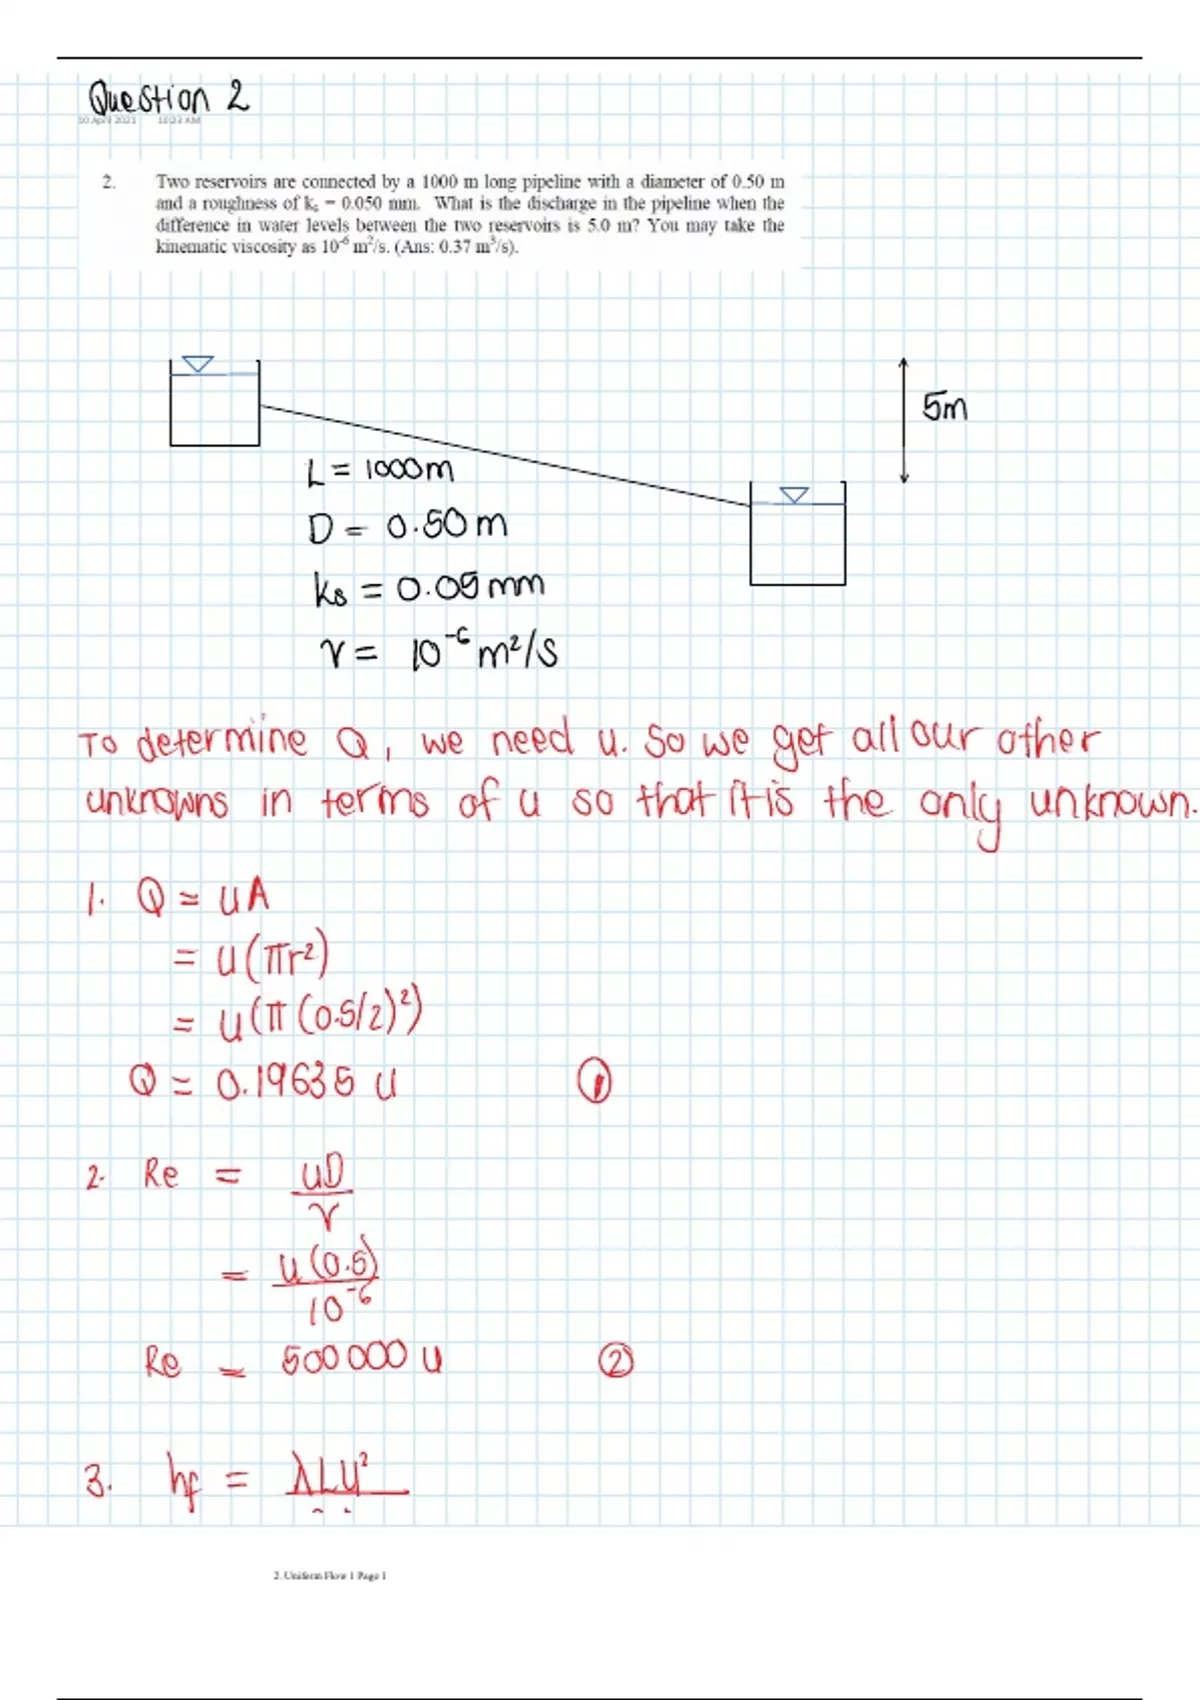 Question 2
10 April 2021 10:23 AM
2. Two reservoirs are connected by a 1000 m long pipeline with a diameter of 0.50 m
and a roughness of kₛ = 0.050 mm. What is the discharge in the pipeline when the
difference in water levels between the two reservoirs is 5.0 m? You may take the
kinematic viscosity as 10⁻⁶ m²/s. (Ans: 0.37 m³/s).
5m
L = 1000m
D = 0.50m
ks = 0.05mm
γ = 10⁻⁶ m²/s
To determine Q, we need u. So we get all our other
unknowns in terms of u so that it is the only unknown.
1. Q = uA
= u(πr²)
= u(π(0.5/2)²)
Q = 0.19635 u ①
2. Re = uD
γ
= u(0.5)
10⁻⁶
Re = 500000 u ②
3. hf = λLu²
2. Uniform Flow 1 Page 1